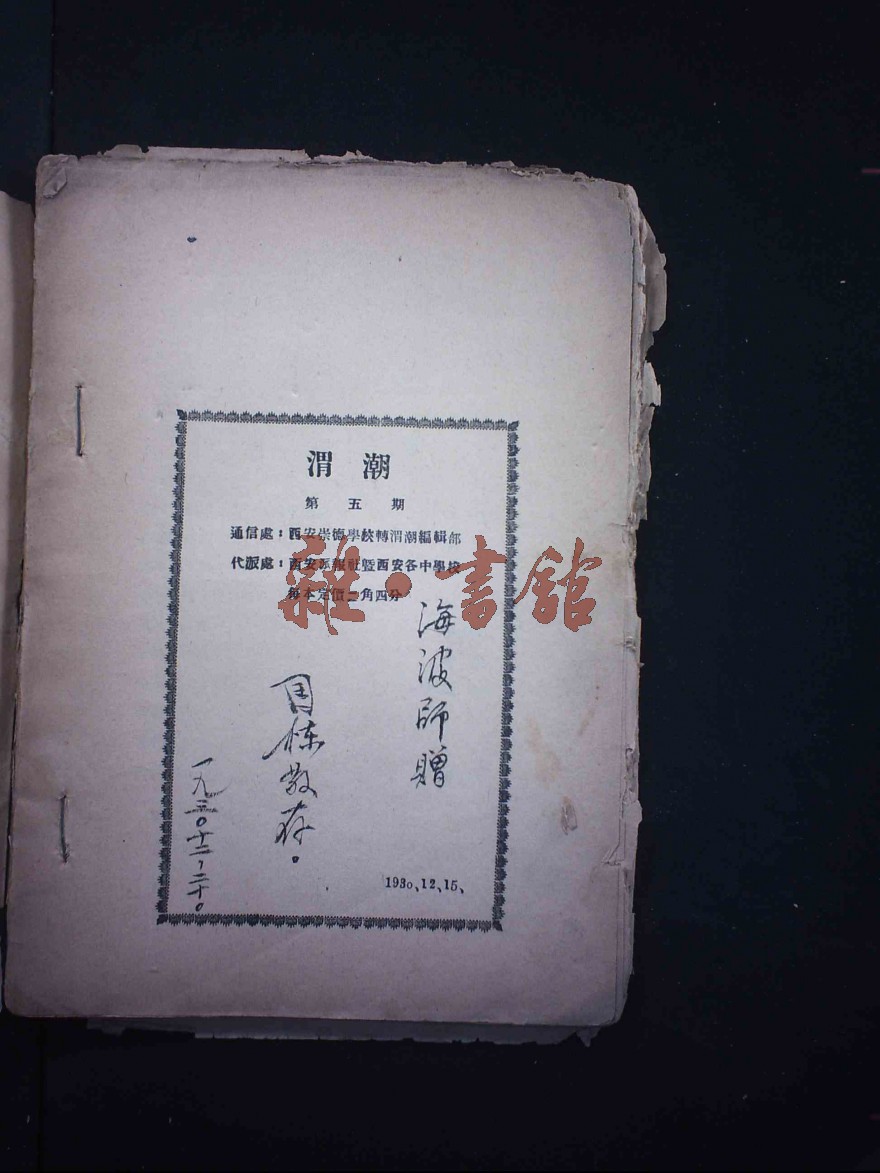 渭潮
第五期
通信處：西安崇德學校轉渭潮編輯部
代派處：西安報社暨西安各中學校
每本定價角四分
雜·書館
海波師贈
周棟敬存。
一九三〇、十二、二十。
1930、12、15、